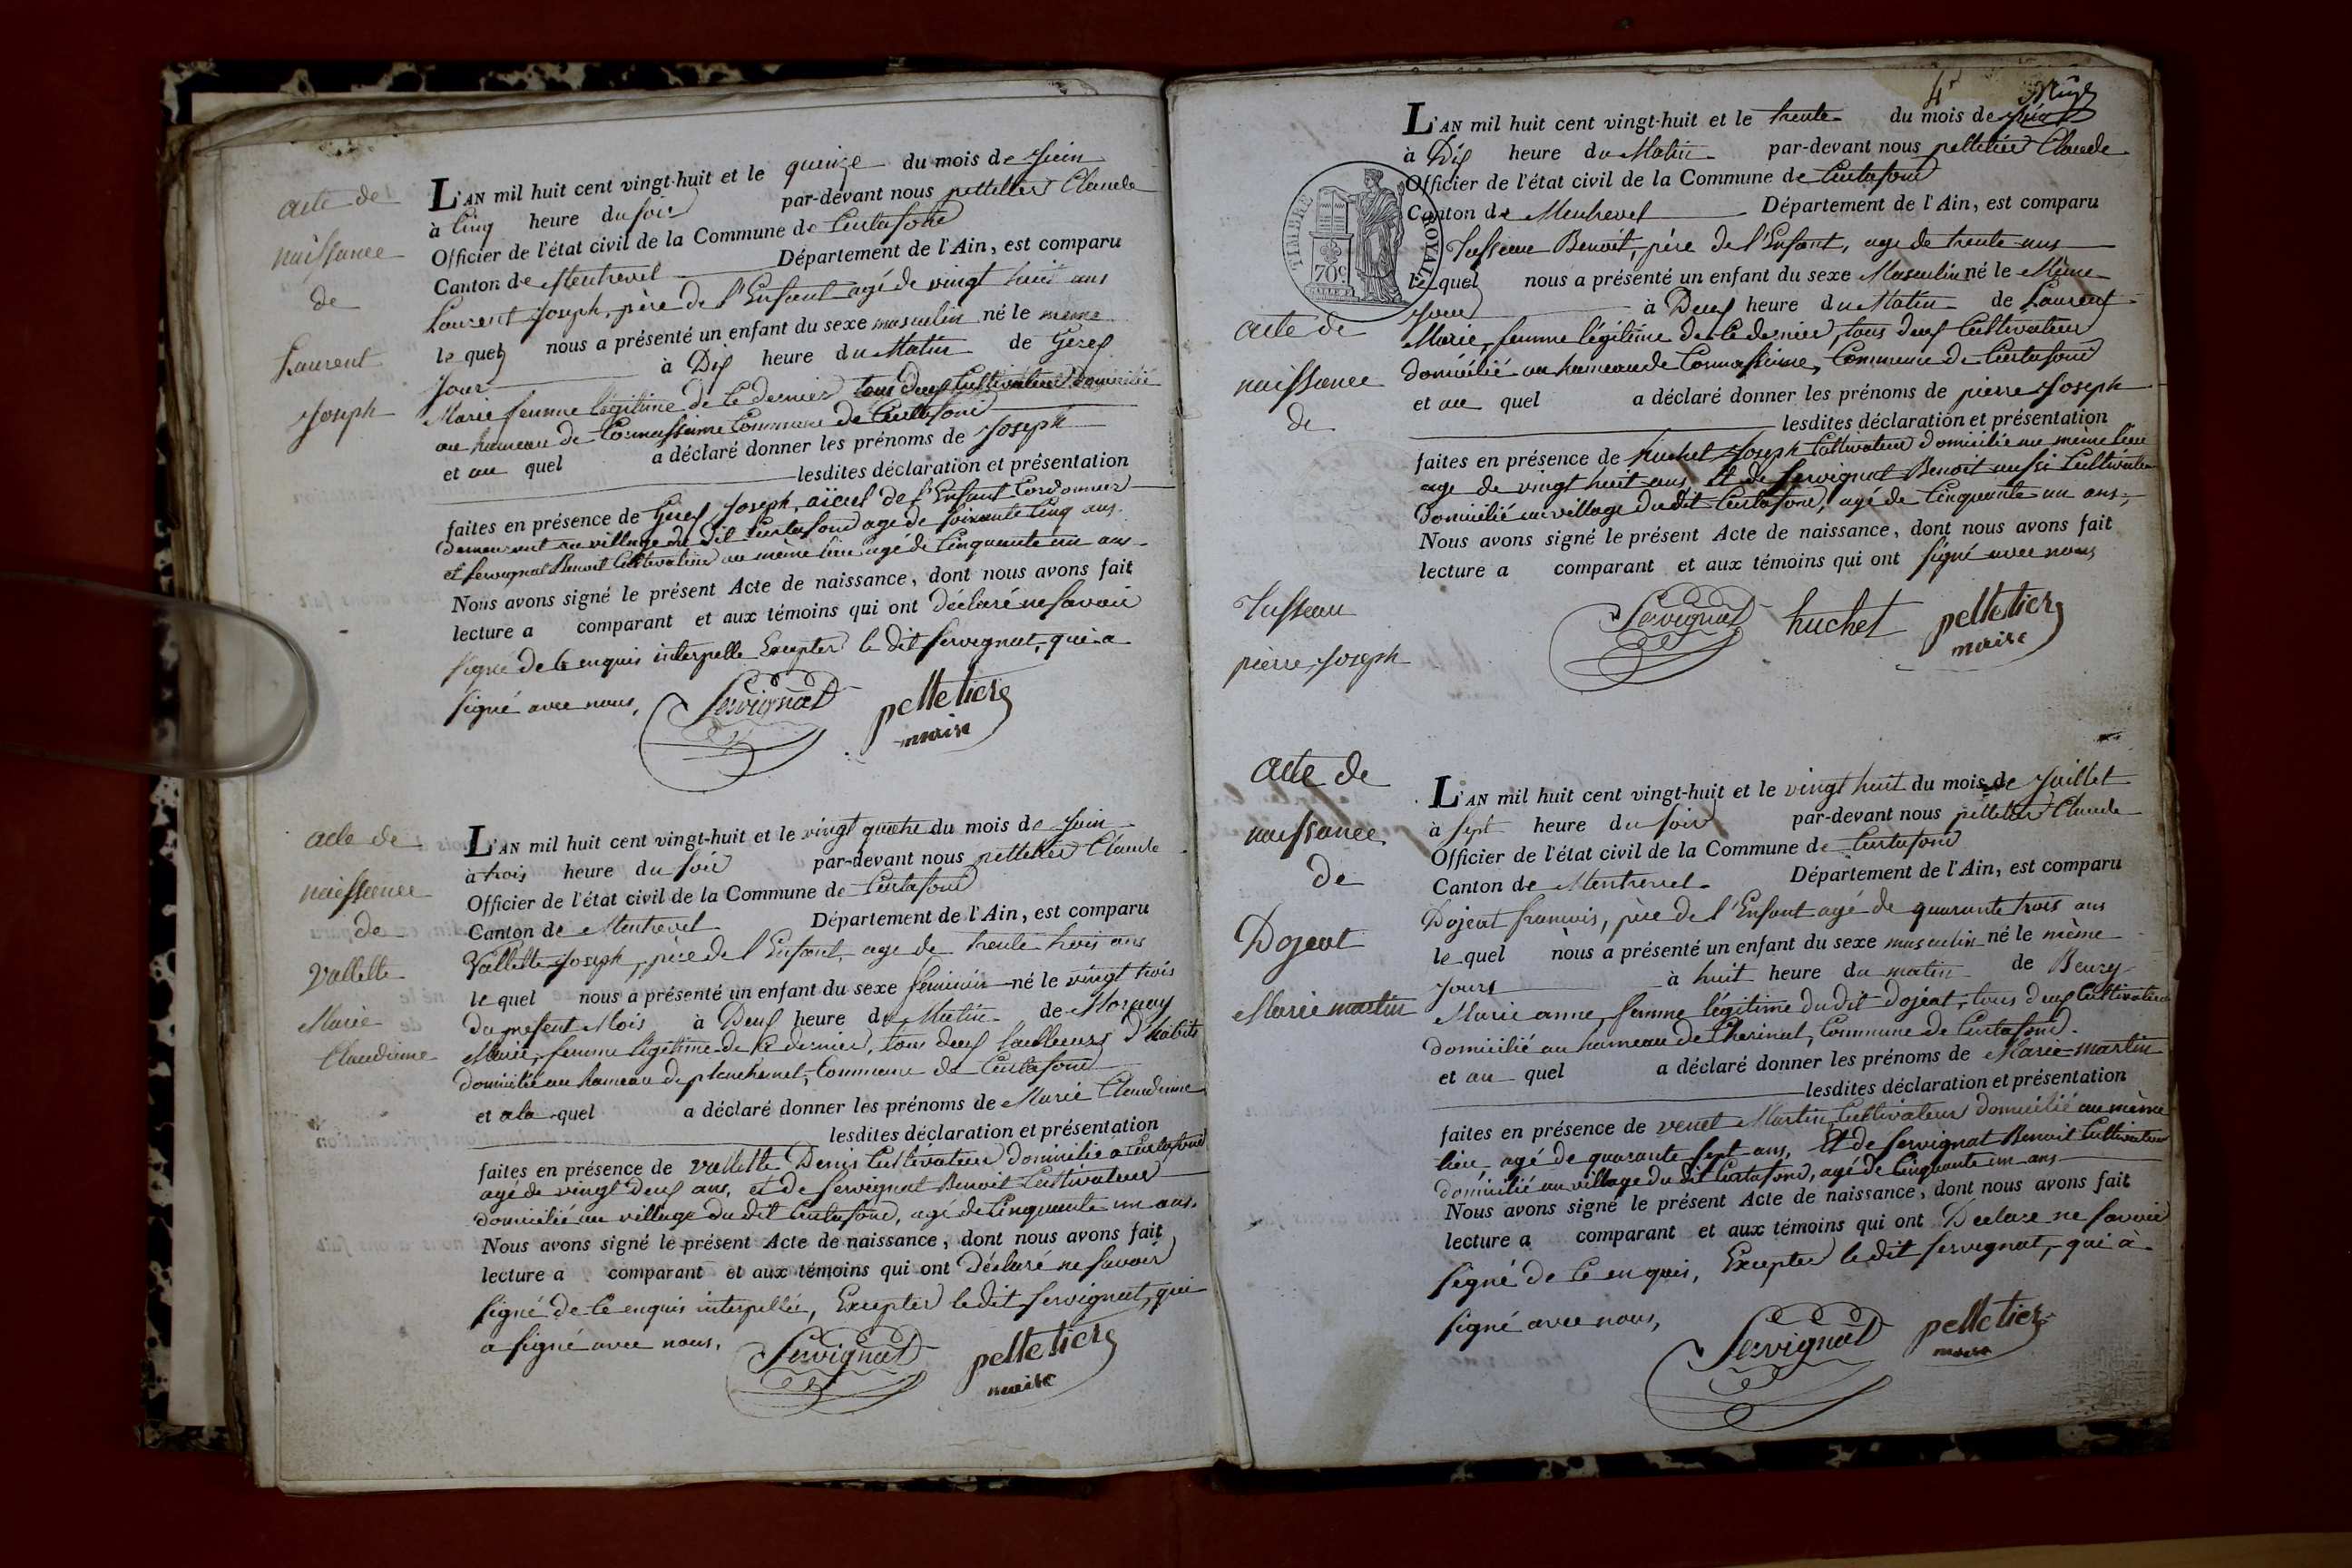 acte de
naissance
de
Laurent
Joseph
L'AN mil huit cent vingt-huit et le quinze du mois de Juin
à Cinq heure du soir par-devant nous pelletier Claude
Officier de l'état civil de la Commune de Curtafond
Canton de Montrevel Département de l'Ain, est comparu
Laurent Joseph, père de l'Enfant agé de vingt huit ans
le quel nous a présenté un enfant du sexe masculin né le meme
Jour à Dix heure du Matin de Gerex
Marie femme légitime de ce dernier tous deux Cultivateur domicilié
au hameau de Cormassinne Commune de Curtafond
et au quel a déclaré donner les prénoms de Joseph
lesdites déclaration et présentation
faites en présence de Gerex, Joseph, aïeul de l'Enfant Cordonnier
demeurant au village du dit Curtafond agé de soixante Cinq ans.
et servignat Benoit Cultivateur au même lieu agé de Cinquante un ans.
Nous avons signé le présent Acte de naissance, dont nous avons fait
lecture a comparant et aux témoins qui ont Déclaré ne savoir
signé de Ce enquis interpellé Excepter le dit servignat, qui a
signé avec nous,
Servignat pelletier
maire
acte de
naissance
de
Vallette
Marie
Claudinne
L'AN mil huit cent vingt-huit et le vingt quatre du mois de Juin
à trois heure du soir par-devant nous pelletier Claude
Officier de l'état civil de la Commune de Curtafond
Canton de Montrevel Département de l'Ain, est comparu
Vallette Joseph, père de l'Enfant, age de trente trois ans
le quel nous a présenté un enfant du sexe féminin né le vingt trois
du présent Mois à Deux heure du Matin de Mornay
Marie, femme légitime de Ce dernier, tous deux tailleurs d'habits
domicilié au hameau de planchenel, Commune de Curtafond
et a la quel a déclaré donner les prénoms de Marie Claudinne
lesdites déclaration et présentation
faites en présence de vallette Denis Cultivateur domicilié a Curtafond
agé de vingt deux ans, et de servignat Benoit Cultivateur
domicilié au village du dit Curtafond, agé de Cinquante un ans.
Nous avons signé le présent Acte de naissance, dont nous avons fait
lecture a comparant et aux témoins qui ont Déclaré ne savoir
signé de Ce enquis interpellée, Excepter le dit servignat, qui
a signé avec nous,
Servignat pelletier
maire
4
TIMBRE ROYAL
70c
acte de
naissance
de
Tusseau
pierre Joseph
L'AN mil huit cent vingt-huit et le trente du mois de Juin
à Dix heure du Matin par-devant nous pelletier Claude
Officier de l'état civil de la Commune de Curtafond
Canton de Montrevel Département de l'Ain, est comparu
Tusseau Benoit, père de l'Enfant, age de trente ans
le quel nous a présenté un enfant du sexe Masculin né le Même
Jour à Deux heure du Matin de Laurent
Marie, femme légitime de Ce dernier, tous deux Cultivateur
domicilié au hameau de Cormassinne, Commune de Curtafond
et au quel a déclaré donner les prénoms de pierre Joseph
lesdites déclaration et présentation
faites en présence de huchet Joseph Cultivateur domicilié au même lieu
age de vingt huit ans, Et de servignat Benoit aussi Cultivateur
Domicilié au village du dit Curtafond, agé de Cinquante un ans,
Nous avons signé le présent Acte de naissance, dont nous avons fait
lecture a comparant et aux témoins qui ont signé avec nous
Servignat huchet pelletier
maire
acte de
naissance
de
Dojeat
Marie martin
L'AN mil huit cent vingt-huit et le vingt huit du mois de Juillet
à sept heure du soir par-devant nous pelletier Claude
Officier de l'état civil de la Commune de Curtafond
Canton de Montrevel Département de l'Ain, est comparu
Dojeat francois, père de l'Enfant agé de quarante trois ans
le quel nous a présenté un enfant du sexe masculin né le même
Jours à huit heure du matin de Beury
Marie anne, femme légitime du dit dojeat, tous deux Cultivateur
domicilié au hameau de Cherinat, Commune de Curtafond.
et au quel a déclaré donner les prénoms de Marie martin
lesdites déclaration et présentation
faites en présence de venet Martin Cultivateur domicilié au même
lieu, agé de quarante sept ans, Et de servignat Benoit Cultivateur
domicilié au village du dit Curtafond, agé de Cinquante un ans
Nous avons signé le présent Acte de naissance, dont nous avons fait
lecture a comparant et aux témoins qui ont Declare ne savoir
signé de Ce enquis, Excepter le dit servignat, qui à
signé avec nous,
Servignat pelletier
maire